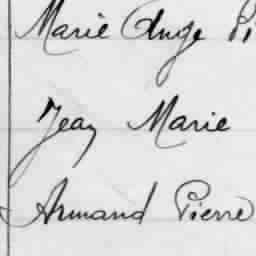 Marie Ange Pi
Jean Marie
Armand Pierre